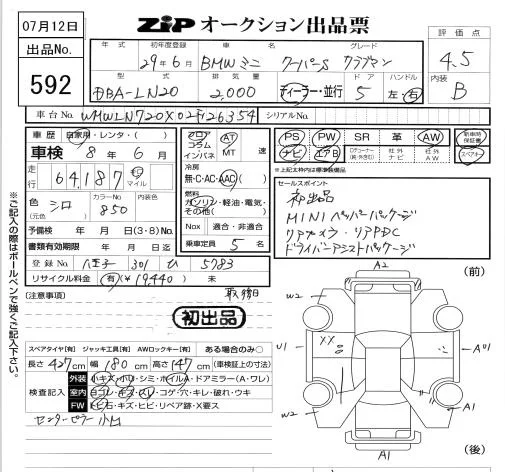 07月12日
ZIP オークション出品票
出品No. 592
年式 初年度登録 車名 グレード 評価点
29年6月 BMWミニ クーパーS クラブマン 4.5
型式 排気量 ドア ハンドル 内装
DBA-LN20 2,000 ディーラー・並行 5 左・右 B
車台No WMWLN720X02F26354 シリアルNo.
車歴 自家用・レンタ・( )
車検 8年 6月
走行 64,187 キロ マイル
色(元色) シロ カラーNo 850 内装色
予備検 年 月 日(3・8)No.
書類有効期限 年 月 日迄
登録No 八王子 301 ひ 5783
リサイクル料金 有(¥19,440) 未
フロア コラム インパネ AT MT 速
冷房 無・C・AC・AAC( )
燃料 ガソリン・軽油・電気・その他( )
Nox 適合・非適合
乗車定員 5 名
PS PW SR 革 AW 新車時保証書
ナビ エアB 社外ナビ 社外AW
※上記太枠内は標準装備品
セールスポイント
初出品
MINIペッパーパッケージ
リアカメラ・リアPDC
ドライバーアシストパッケージ
※ご記入の際はボールペンで強くご記入下さい。
(注意事項) 取説
初出品
スペアタイヤ[有] ジャッキ工具[有] AWロックキー[有] ある場合のみ○
長さ 427cm 幅 180cm 高さ 147cm (車検証上の寸法)
検査記入
外装 小キズ・小凹・シミ・ホイルA・ドアミラー(A・ワレ)
室内 ヨゴレ・キズ・スレ・コゲ・穴・キレ・破れ・ウキ
FW トビ石・キズ・ヒビ・リペア跡・X要ス
センターピラー小凹
(前)
A2
W2
U1
XX
A1
W2
A1
A1
(後)